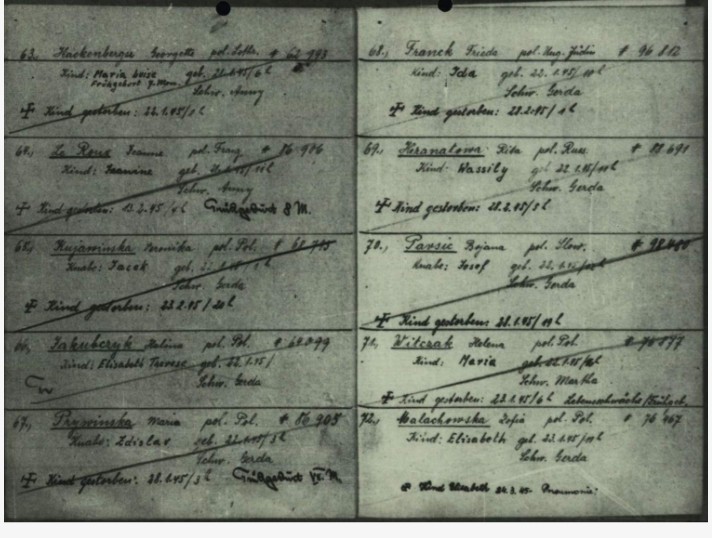 63., Hackenberger Georgette pol. Lottr. # 62 993
Kind: Maria Luise geb. 21.1.45/6 h
Frühgeburt 7. Mon. Schw. Anny
✝ Kind gestorben: 22.1.45/1 h
64., Le Roux Jeanne pol. Franz. # 86 986
Kind: Jeannine geb.
Schw. Anny
✝ Kind gestorben: 13.2.45/4 h Frühgeburt 8 M.
65., Kujawinska Bronika pol. Pol.
Knabe: Jacek geb.
Schw. Gerda
✝ Kind gestorben: 23.2.45/20 h
66., Jakubczyk Halina pol. Pol.
Kind: Elisabeth Therese geb. 22.1.45/
Schw. Gerda
67., Prywinska Maria pol. Pol. # 86 905
Knabe: Zdislav geb. 22.1.45/
Schw. Gerda
✝ Kind gestorben: 28.1.45/3 h Frühgeburt M.
68., Franck Frieda pol. Ung. Jüdin # 96 812
Kind: Ida geb. 22.1.45/
Schw. Gerda
✝ Kind gestorben: 28.2.45/1 h
69., Rita pol. Russ # 88 691
Kind: Wassily geb 22.1.45/
Schw. Gerda
✝ Kind gestorben: 28.2.45/5 h
70., Parsic Bojana pol. Slow.
Knabe: Josef geb. 22.1.45/
Schw. Gerda
✝ Kind gestorben: 28.1.45/19 h
71., Witczak Helena pol. Pol.
Kind: Maria geb. 22.1.45/
Schw. Martha
✝ Kind gestorben: 25.1.45/6 h Lebensschwäche
72., Malachowska Zofia pol. Pol. # 76 467
Kind: Elisabeth geb. 23.1.45/
Schw. Gerda
✝ Kind Elisabeth 24.3.45 Pneumonie.